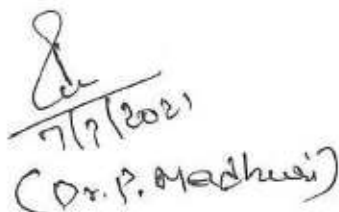 7/7/2021
(Dr. P. Madhuri)